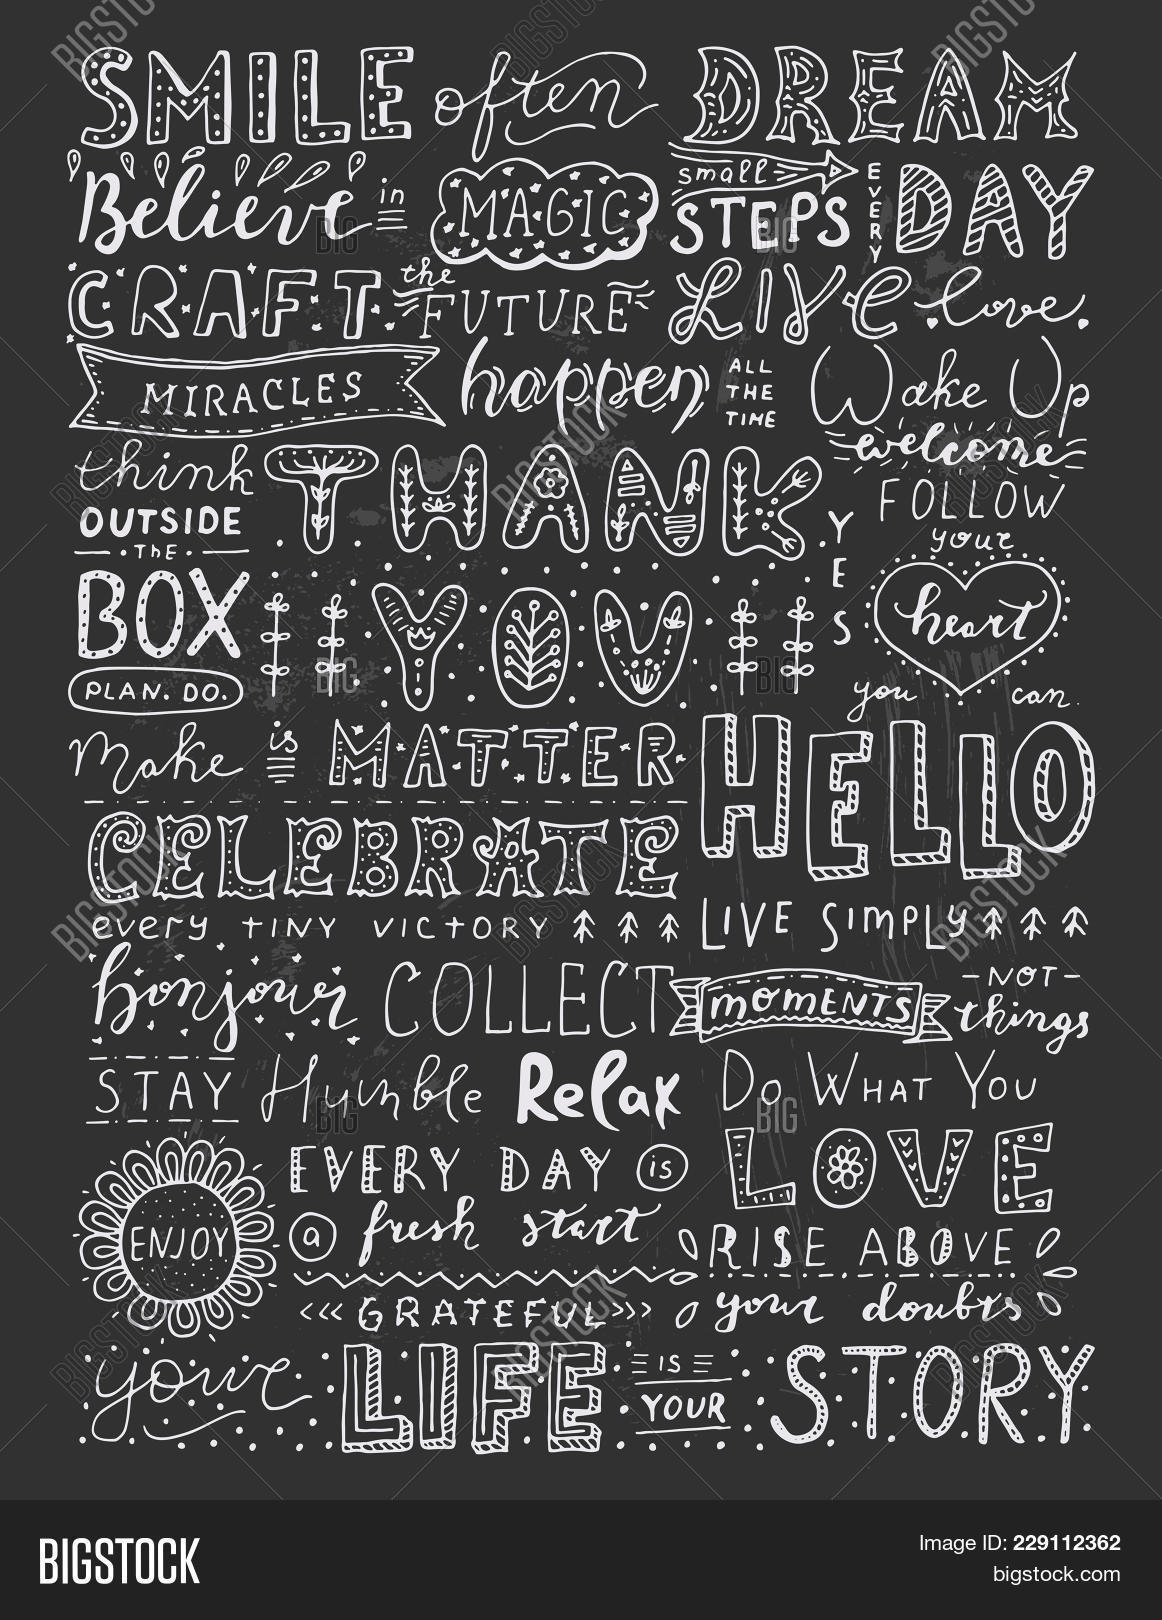 SMILE often DREAM
Believe in MAGIC small STEPS EVERY DAY
CRAFT the FUTURE LIVE love.
MIRACLES happen ALL THE TIME Wake Up
welcome
think OUTSIDE THE BOX
THANK YOU
YES
FOLLOW your heart
PLAN. DO.
you can.
make is MATTER
HELLO
CELEBRATE
every TINY VICTORY
LIVE SIMPLY
bonjour COLLECT moments -NOT- things
STAY Humble Relax Do What You LOVE
ENJOY
EVERY DAY is
a fresh start
RISE ABOVE
your doubts
<<< GRATEFUL >>>
your LIFE IS YOUR STORY
BIGSTOCK
Image ID: 229112362
bigstock.com